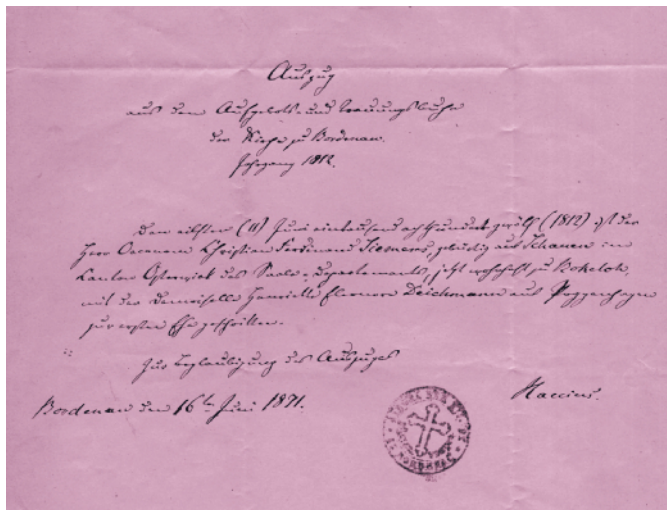 Auszug
aus dem Aufgebots- und Trauungsbuche
der Kirche zu Bordenau.
Jahrgang 1812.
Den eilften (11) Juni eintausend achthundert zwölf (1812) ist der
Herr Oeconom Christian Ferdinand Siemens, gebürtig aus Schauen im
Canton Osterwiek des Saale-Departements, jetzt wohnhaft zu Bokeloh,
mit der Demoiselle Henriette Eleonore Deichmann aus Poggenhagen
zur ersten Ehe geschritten.
Zur Beglaubigung des Auszuges
Bordenau den 16ten Juni 1871.
Haccius.
BORDENAU